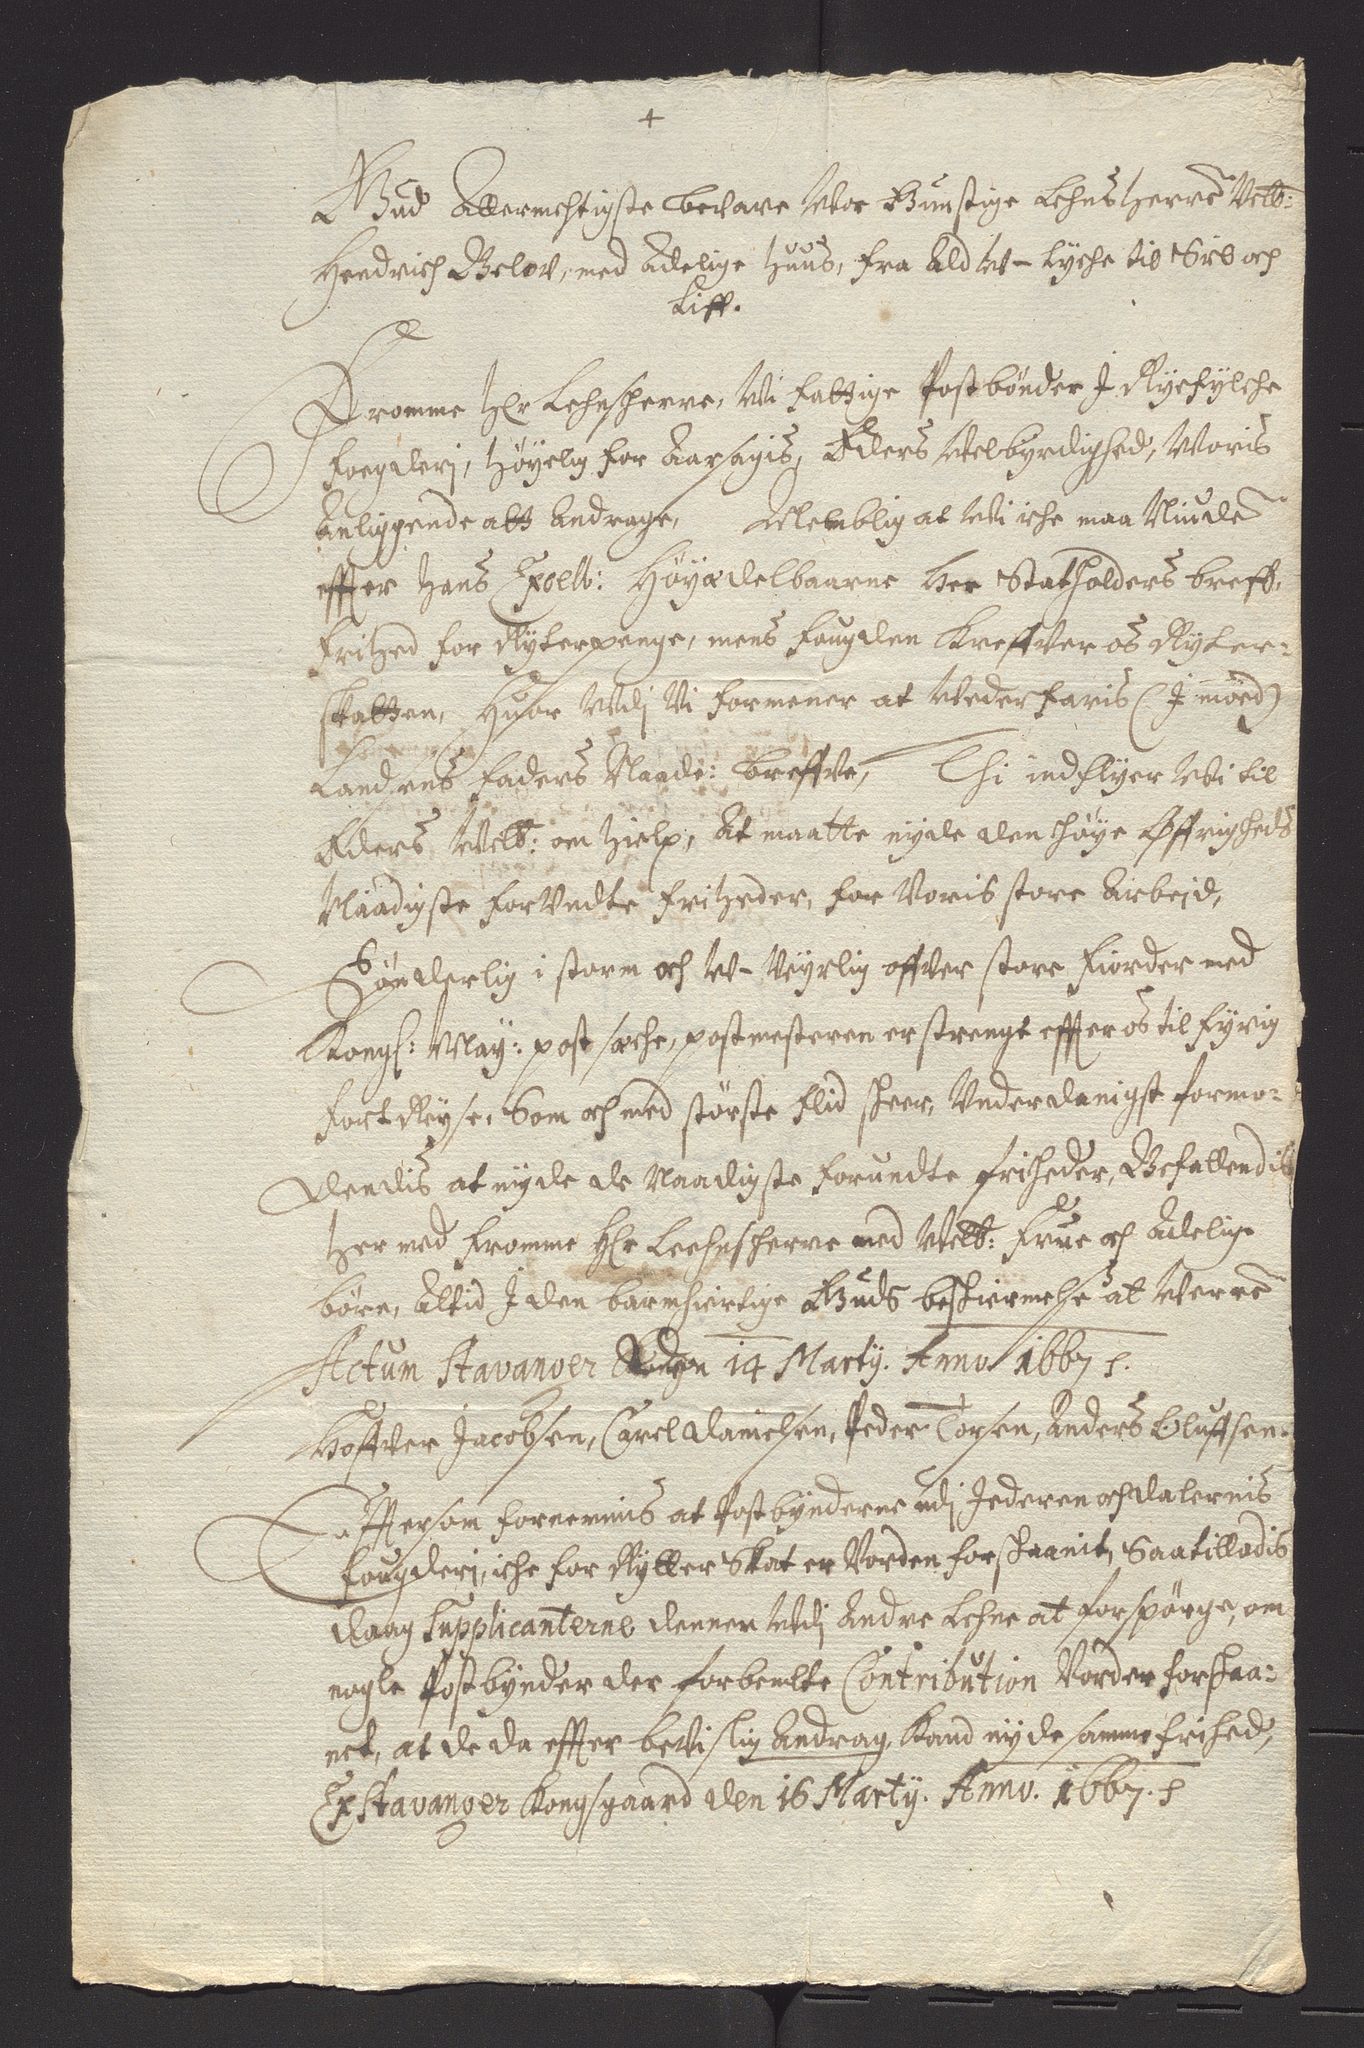 Gud Allermechtigste bevare Wor Gunstige Lehns Herre Velb:
Hendrich Below, med Adelige Huus, fra Ald W- Lyche til Siel och
Liff.
Fromme Hr Lehnsherre, Wi fattige Postbönder J Ryefylche
Fougderj, Höyelig for Aarsagis, Eders Welbyrdighed, Woris
Anliggende att Andrage, Nemblig at Wi iche maa Niude
effter Hans Excell: Höyædelbaarne Her Statholders breff,
frihed for Ryterpenge, mens fougden Kreffver os Ryter-
skatten, Huor Udj Wi formener at Wederfaris (J möed)
Landsens Faders Naade: breffve, Thi indflyer Wi til
Eders Welb: om Hielp, At maatte nyde den höye Öffrigheds
Naadigste forUndte friheder, for Voris store Arbejd,
Sönderlig i storm och W- Veyrlig offver store Fiorder med
Kongl: May: post sæche, postmesteren er strengt effter os til fyrig
fort Reyse, Som och med störste flid skeer, Underdanigst formo-
dendis at nyde de Naadigste forundte friheder, Befallendis
Hermed fromme Hr Lehnsherre med Welb: Frue och Adelige
börn, Altid J den barmhiertige Guds beskiermelse at Were
Actum Stavanger den 14 Martij. Anno 1667.
Hoffver Jacobsen, Carel Danielsen, Peder Torsen, Anders Oluffsen.
Effttersom fornemmis at Postbynderne udj Jederen och Dalernis
fougderj, iche for Rytter Skat er Vorden forskaanit, Saa tilladis
daag Supplicanterne dennem Udj Andre Lehne at forspörge, om
nogle Postbynder der forbemelte Contribution Vorder forskaa-
net, at de da effter bevislig Andrag Kand nyde samme frihed,
Ex Stavanger Kongsgaard den 16 Martij. Anno. 1667.